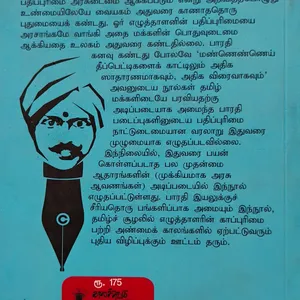 பதிப்புரிமை அரசுடைமை ஆக்கப்படும்
உண்மையிலேயே வையகம் அதுவரை காணாததொரு
புதுமையைக் கண்டது. ஓர் எழுத்தாளனின் பதிப்புரிமையை
அரசாங்கமே வாங்கி அதை மக்களின் பொதுவுடைமை
ஆக்கியதை உலகம் அதுவரை கண்டதில்லை. பாரதி
கனவு கண்டது போலவே 'மண்ணெண்ணெய்
தீப்பெட்டிகளைக் காட்டிலும் அதிக
ஸாதாரணமாகவும், அதிக விரைவாகவும்'
அவனுடைய நூல்கள் தமிழ்
மக்களிடையே பரவியதற்கு
அடிப்படையாக அமைந்த பாரதி
படைப்புகளினுடைய பதிப்புரிமை
நாட்டுடைமையான வரலாறு இதுவரை
முழுமையாக எழுதப்படவில்லை.
இந்நிலையில், இதுவரை பயன்
கொள்ளப்படாத பல முதன்மை
ஆதாரங்களின் (முக்கியமாக அரசு
ஆவணங்கள்) அடிப்படையில் இந்நூல்
எழுதப்பட்டுள்ளது. பாரதி இயலுக்குச்
சீரியதொரு பங்களிப்பாக அமையும் இந்நூல்,
தமிழ்ச் சூழலில் எழுத்தாளரின் காப்புரிமை
பற்றி அண்மைக் காலங்களில் ஏற்பட்டுவரும்
புதிய விழிப்புக்கும் ஊட்டம் தரும்.
C
ரூ. 175